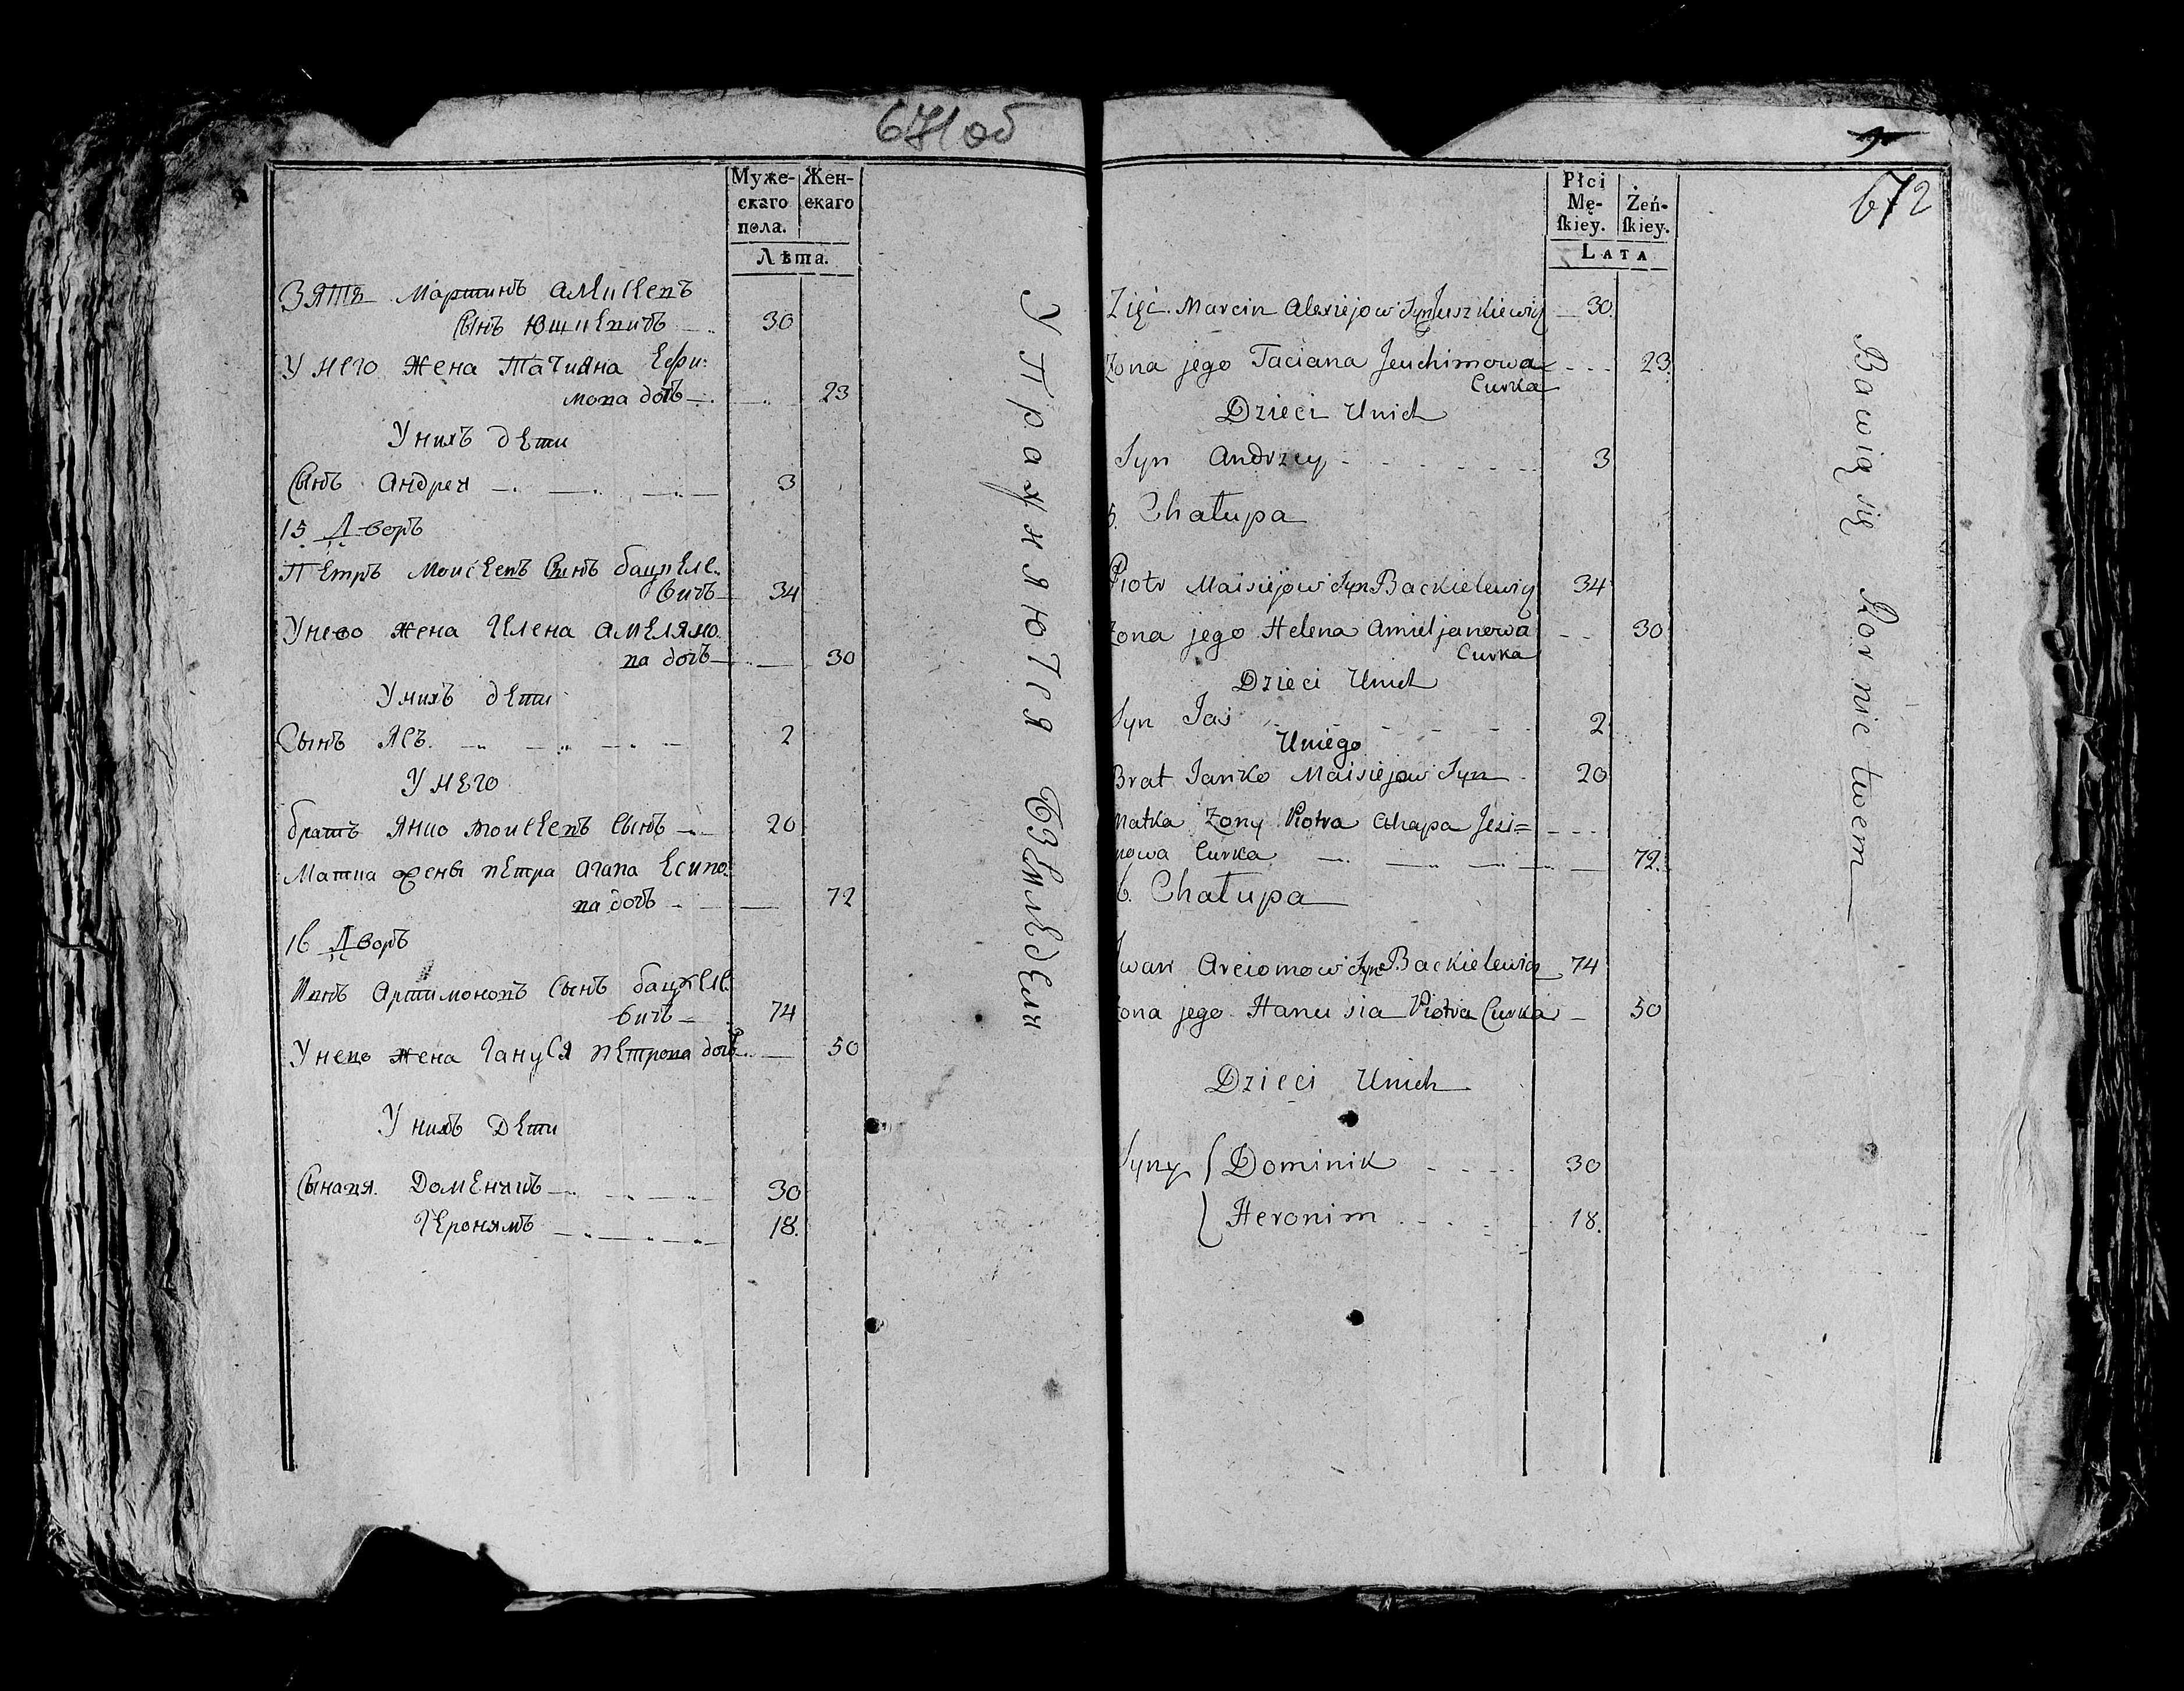 671 об
Муже-
скаго
пола.
Жен-
скаго
Лѣта.
зять Мартинъ
Сынъ Юшкевичъ 30
У него жена Татияна Ефи:
мова дочь 23
У нихъ дети
Сынъ Андрея 3
15 Дворъ
Петръ Моисеевъ Сынъ бацкеле
вичъ 34
У нево жена Гелена Амеляно
ва дочь 30
У нихъ дети
Сынъ Ясъ 2
У него
братъ Янко Моисеевъ Сынъ 20
Матка жены Петра Агапа Есипо
ва дочь 72
16 Дворъ
Ивнъ Артимоновъ Сынъ бацкеле
вичъ 74
У нево жена Гануся Петрова дочь 50
У нихъ Дети
Сынавя Доменикъ 30
Геронямъ 18.
Упражняются земледелия
672
Płci
Mę-
ſkiey.
Żeń-
ſkiey.
LATA
Zięć Marcin Alexiejow Syn Juszkiewicz 30.
Zona jego Taciana Jeuchimowa 23.
Curka
Dzieci Unich
Syn Andrzey 3
5. Chałupa
Piotr Maisiejow Syn Backielewicz 34
Zona jego Helena Amieljanowa 30
Curka
Dzieci Unich
Syn Jaś 2
Uniego
Brat Janko Maisiejow Syn 20
Matka Zony Piotra Ahapa Jesi=
powa Curka 72.
6. Chałupa
Iwan Arciomow Syn Backielewicz 74
Zona jego Hanusia Piotra Curka 50
Dzieci Unich
Syny Dominik 30
Heronim 18.
Bawią się Rornictwem